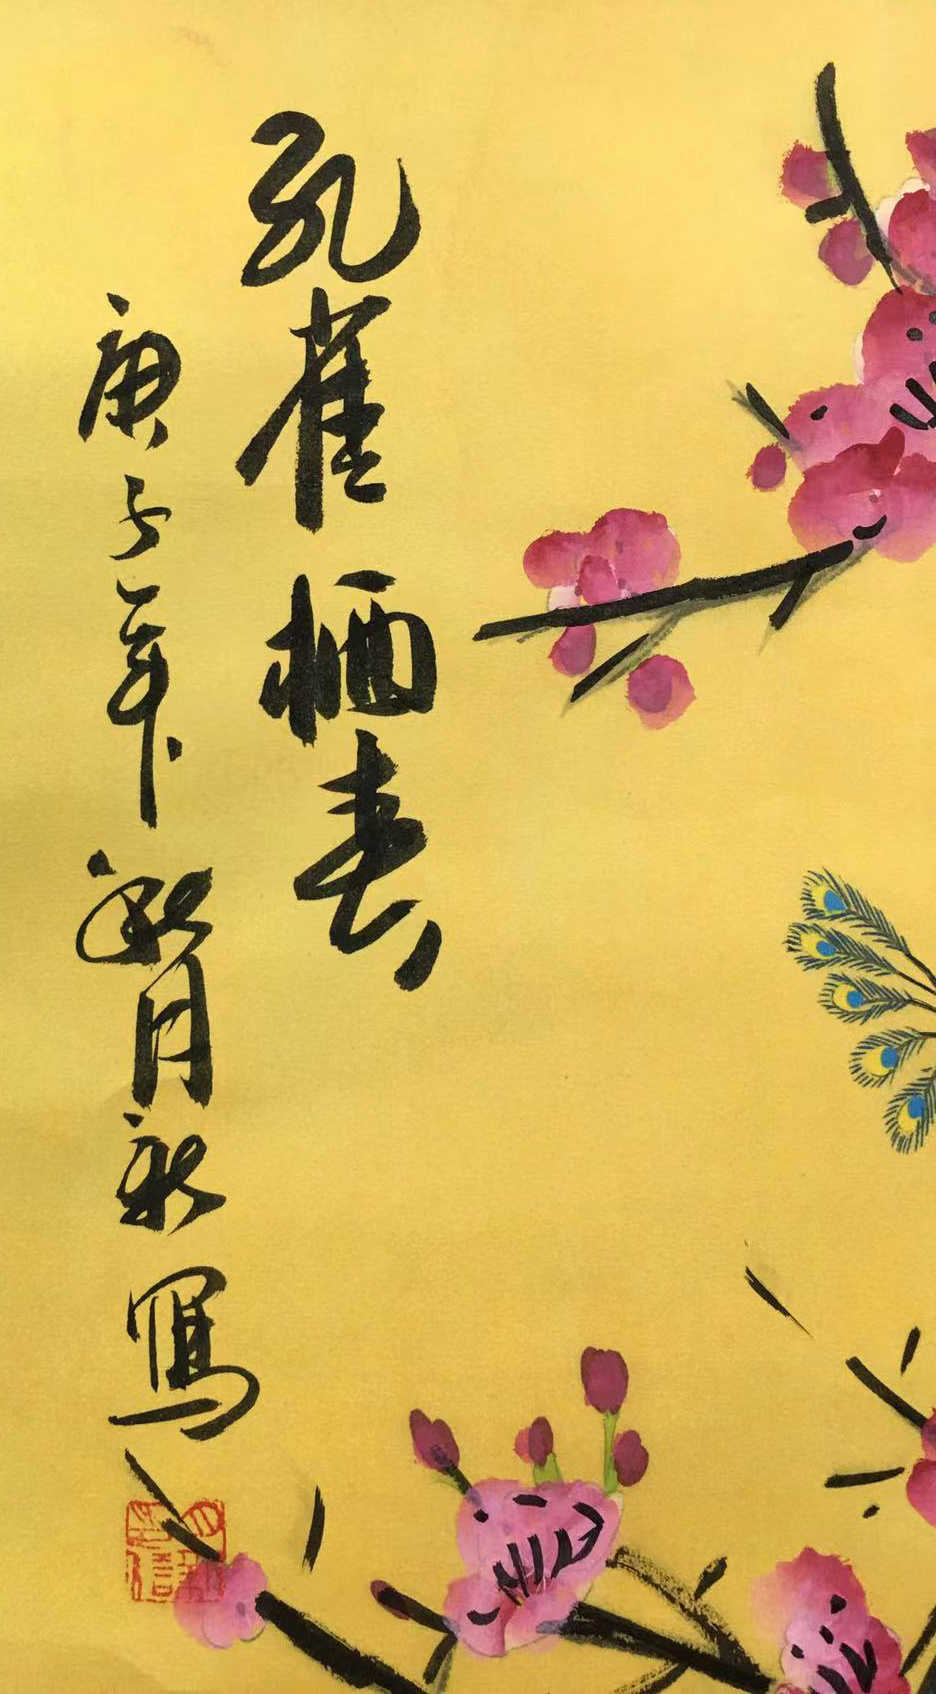 孔雀栖春
庚子年秋月
寫